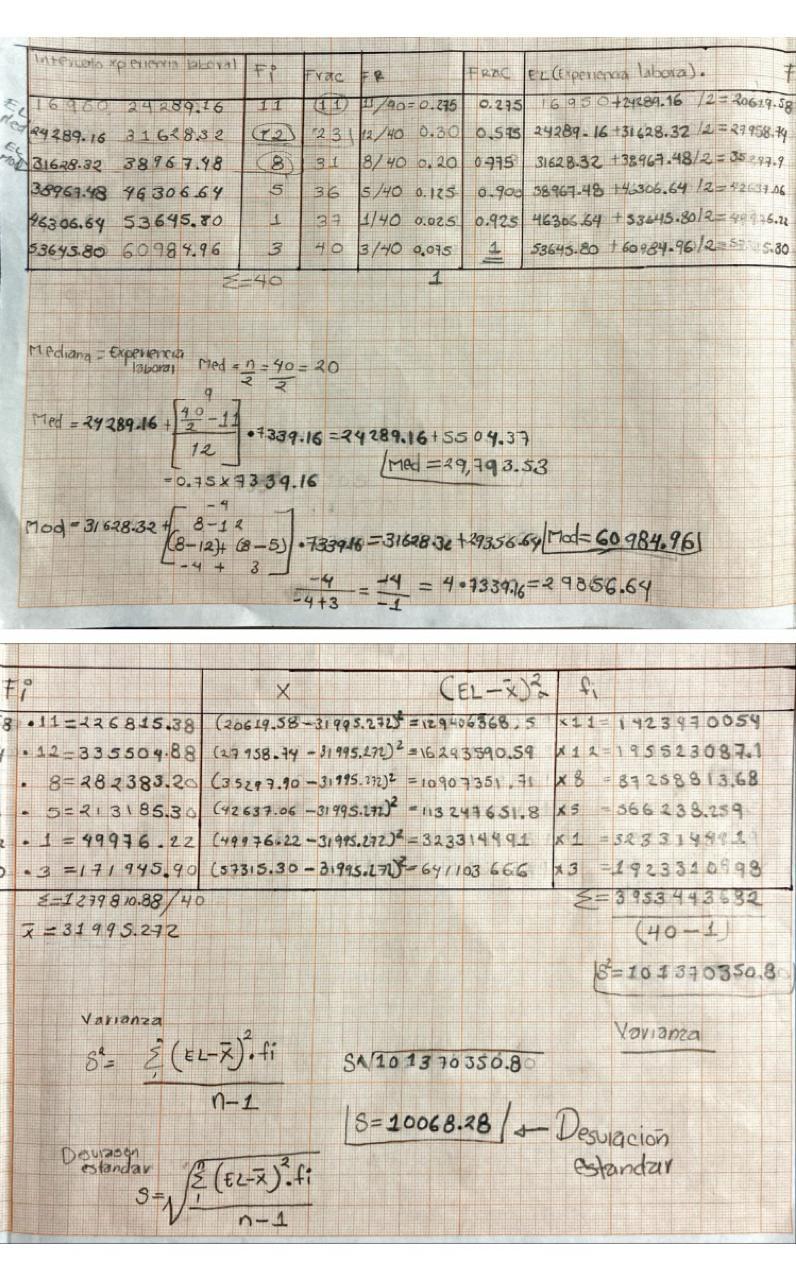 Intervalo xperiencia laboral Fi Frac FR FRAC EL (Experiencia laboral). F
EL 16950 24289.16 11 (11) 11/40=0.275 0.275 16950+24289.16 /2=20619.58
Med 24289.16 31628.32 (12) 23 12/40 0.30 0.575 24289.16+31628.32 /2=27958.74
EL Mod 31628.32 38967.48 (8) 31 8/40 0.20 0.775 31628.32+38967.48/2=35297.9
38967.48 46306.64 5 36 5/40 0.125 0.900 38967.48+46306.64 /2=42637.06
46306.64 53645.80 1 37 1/40 0.025 0.925 46306.64 +53645.80/2=49976.22
53645.80 60984.96 3 40 3/40 0.075 1 53645.80 +60984.96/2=57315.30
Σ=40 1
Mediana = Experiencia laboral Med = n/2 = 40/2 = 20
9
Med = 24289.16 + [40/2 - 11 / 12] • 7339.16 = 24289.16+5504.37
Med = 29,793.53
=0.75x7339.16
-4
Mod = 31628.32 + [8-12 / (8-12)+(8-5)] • 7339.16 = 31628.32 +29356.64 Mod= 60984.96
-4 + 3
-4/-4+3 = -4/-1 = 4•7339.16=29356.64
Fi X (EL-x̄)² fi
8 •11=226815.38 (20619.58-31995.272)²=129406368,5 x11=1423470054
•12=335504.88 (27958.74-31995.272)²=16293590.59 x12=195523087.1
• 8=282383.20 (35297.90-31995.272)²=10907351.71 x8 =87258813,68
• 5=213185.30 (42637.06-31995.272)²=113247651.8 x5 =566238.259
• 1=49976.22 (49976.22-31995.272)²=323314491 x1 =323314491
• 3=171945.90 (57315.30-31995.272)²=641103666 x3 =1923310998
Σ=1279810.88/40 Σ=3953443632
x̄=31995.272 (40-1)
S²=101370350.80
Varianza
Varianza
S²= Σ(EL-x̄)².fi / n-1
S√101370350.80
S=10068.28 ← Desviación estandar
Desviasón estandar
S=√Σ(EL-x̄)².fi / n-1